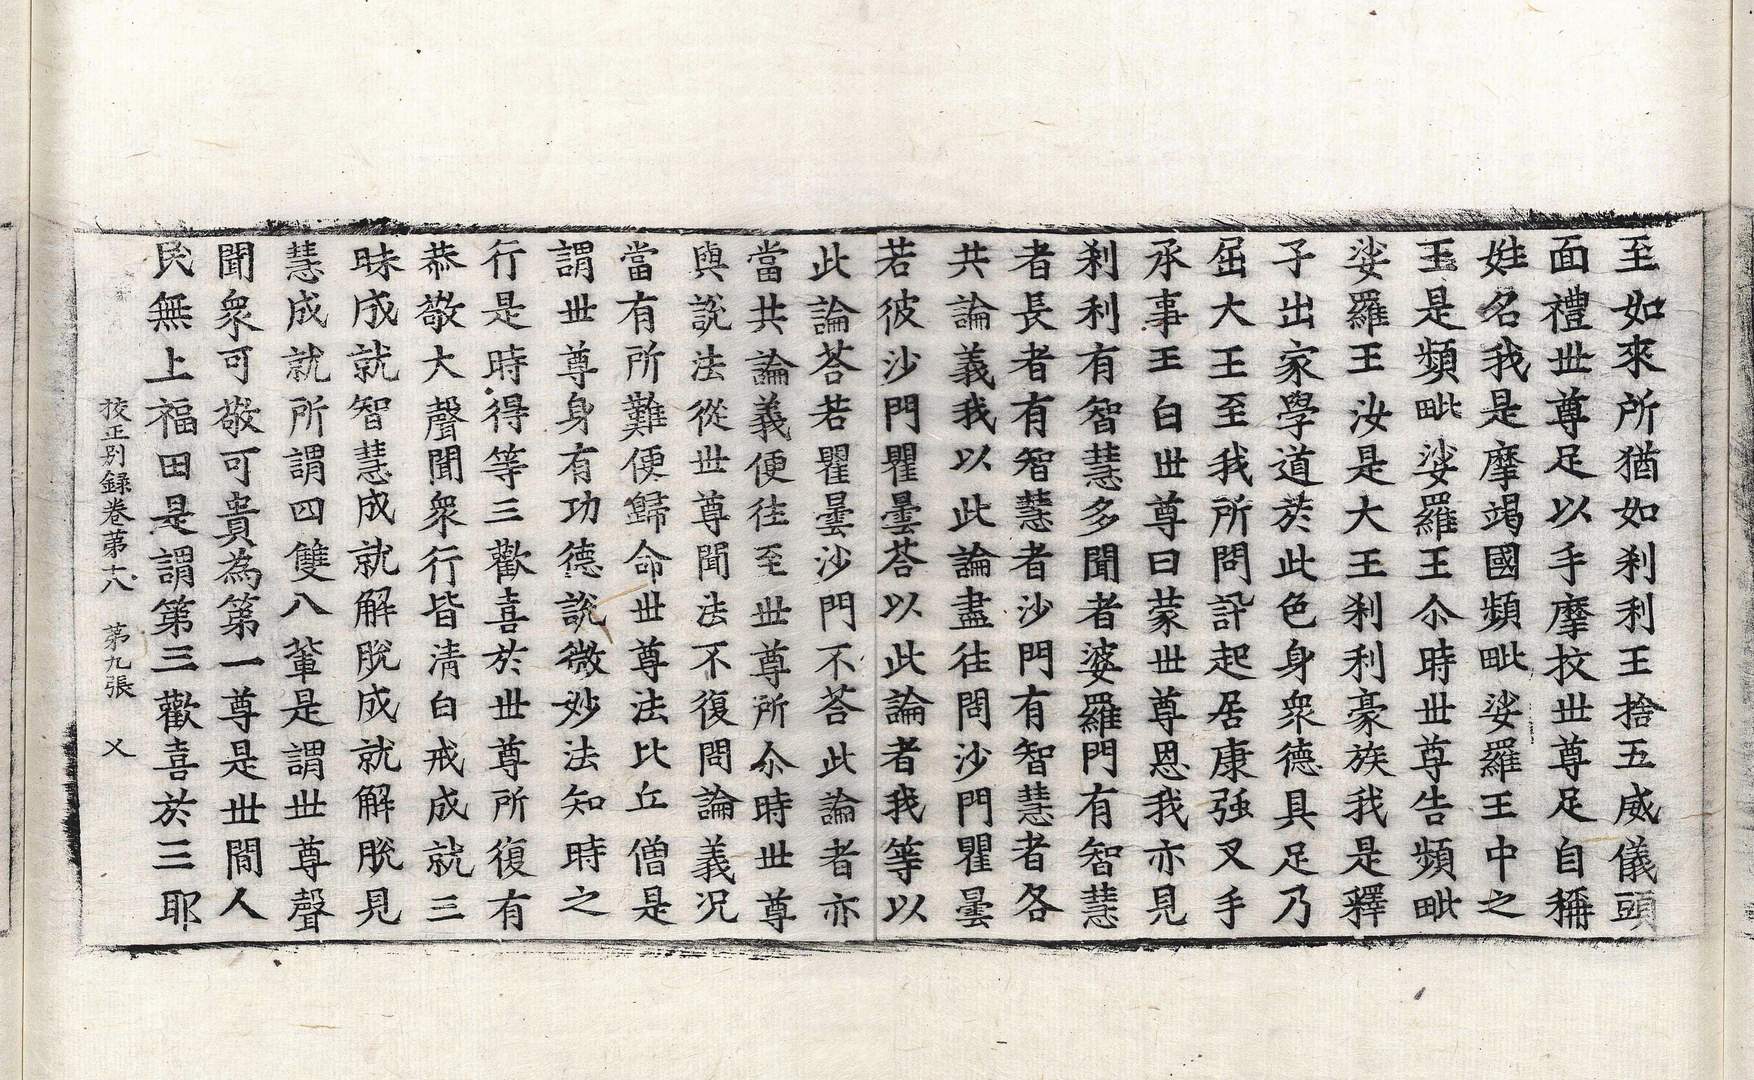 至如來所猶如刹利王捨五威儀頭
面禮世尊足以手摩抆世尊足自稱
姓名我是摩竭國頻毗娑羅王中之
王是頻毗娑羅王尒時世尊告頻毗
娑羅王汝是大王刹利豪族我是釋
子出家學道於此色身衆德具足乃
屈大王至我所問訊起居康强叉手
承事王白世尊曰蒙世尊恩我亦見
刹利有智慧多聞者婆羅門有智慧
者長者有智慧者沙門有智慧者各
共論義我以此論盡往問沙門瞿曇
若彼沙門瞿曇荅以此論者我等以
此論荅若瞿曇沙門不荅此論者亦
當共論義便往至世尊所尒時世尊
與說法從世尊聞法不復問論義況
當有所難便歸命世尊法比丘僧是
謂世尊身有功德說微妙法知時之
行是時得等三歡喜於世尊所復有
恭敬大聲聞衆行皆清白戒成就三
昧成就智慧成就解脫成就解脫見
慧成就所謂四雙八輩是謂世尊聲
聞衆可敬可貴為第一尊是世間人
民無上福田是謂第三歡喜於三耶
挍正別錄卷第十八 第九張 㐅